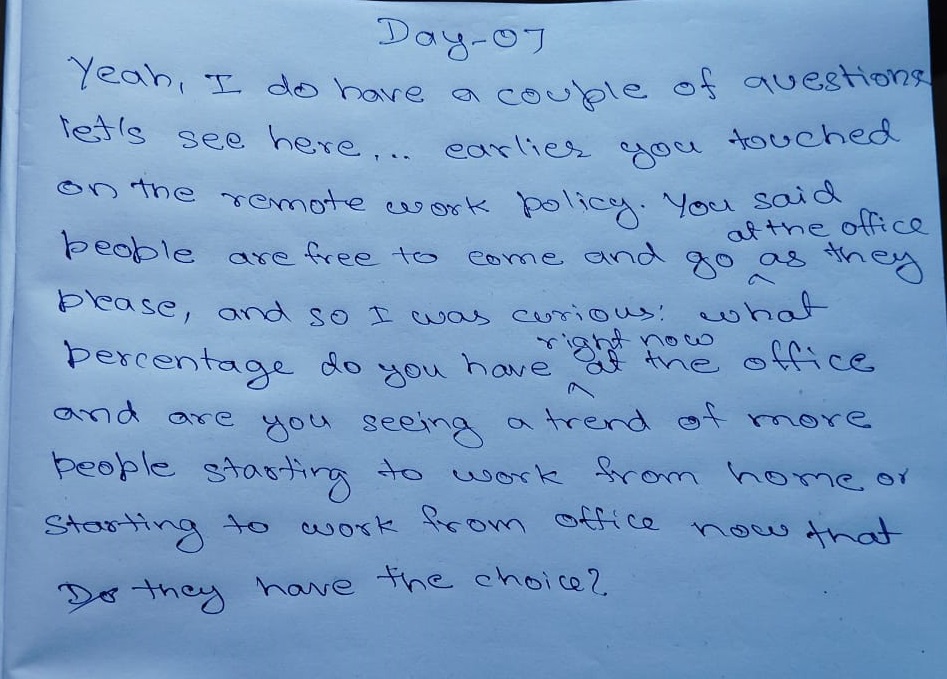 Day-07
Yeah, I do have a couple of questions
let's see here... earlier you touched
on the remote work policy. You said
at the office
people are free to come and go ^ as they
please, and so I was curious: what
right now
percentage do you have ^ at the office
and are you seeing a trend of more
people starting to work from home or
starting to work from office now that
Do they have the choice?